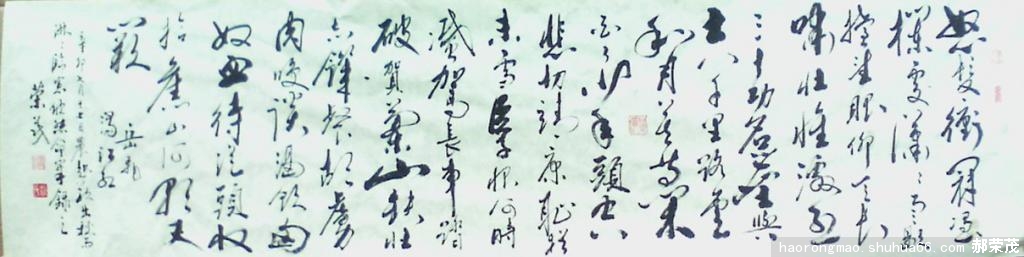 怒髮衝冠憑
欄處瀟瀟雨歇
擡望眼仰天長
嘯壯懷激烈
三十功名塵與
土八千里路雲
和月莫等閑
白了少年頭空
悲切靖康恥猶
未雪臣子恨何時
滅駕長車踏
破賀蘭山缺壯
志饑餐胡虜
肉笑談渴飲匈
奴血待從頭收
拾舊山河朝天
闕
岳飛
滿江紅
辛卯七月十七日晨起
榮茂
haorongmao.shuhua66.com 郝荣茂